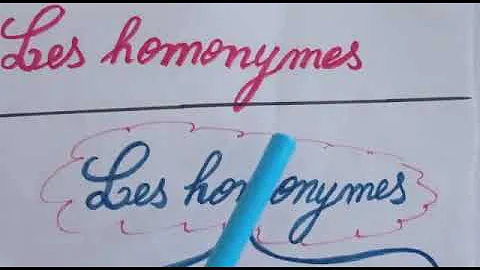 Les homonymes
Les homonymes